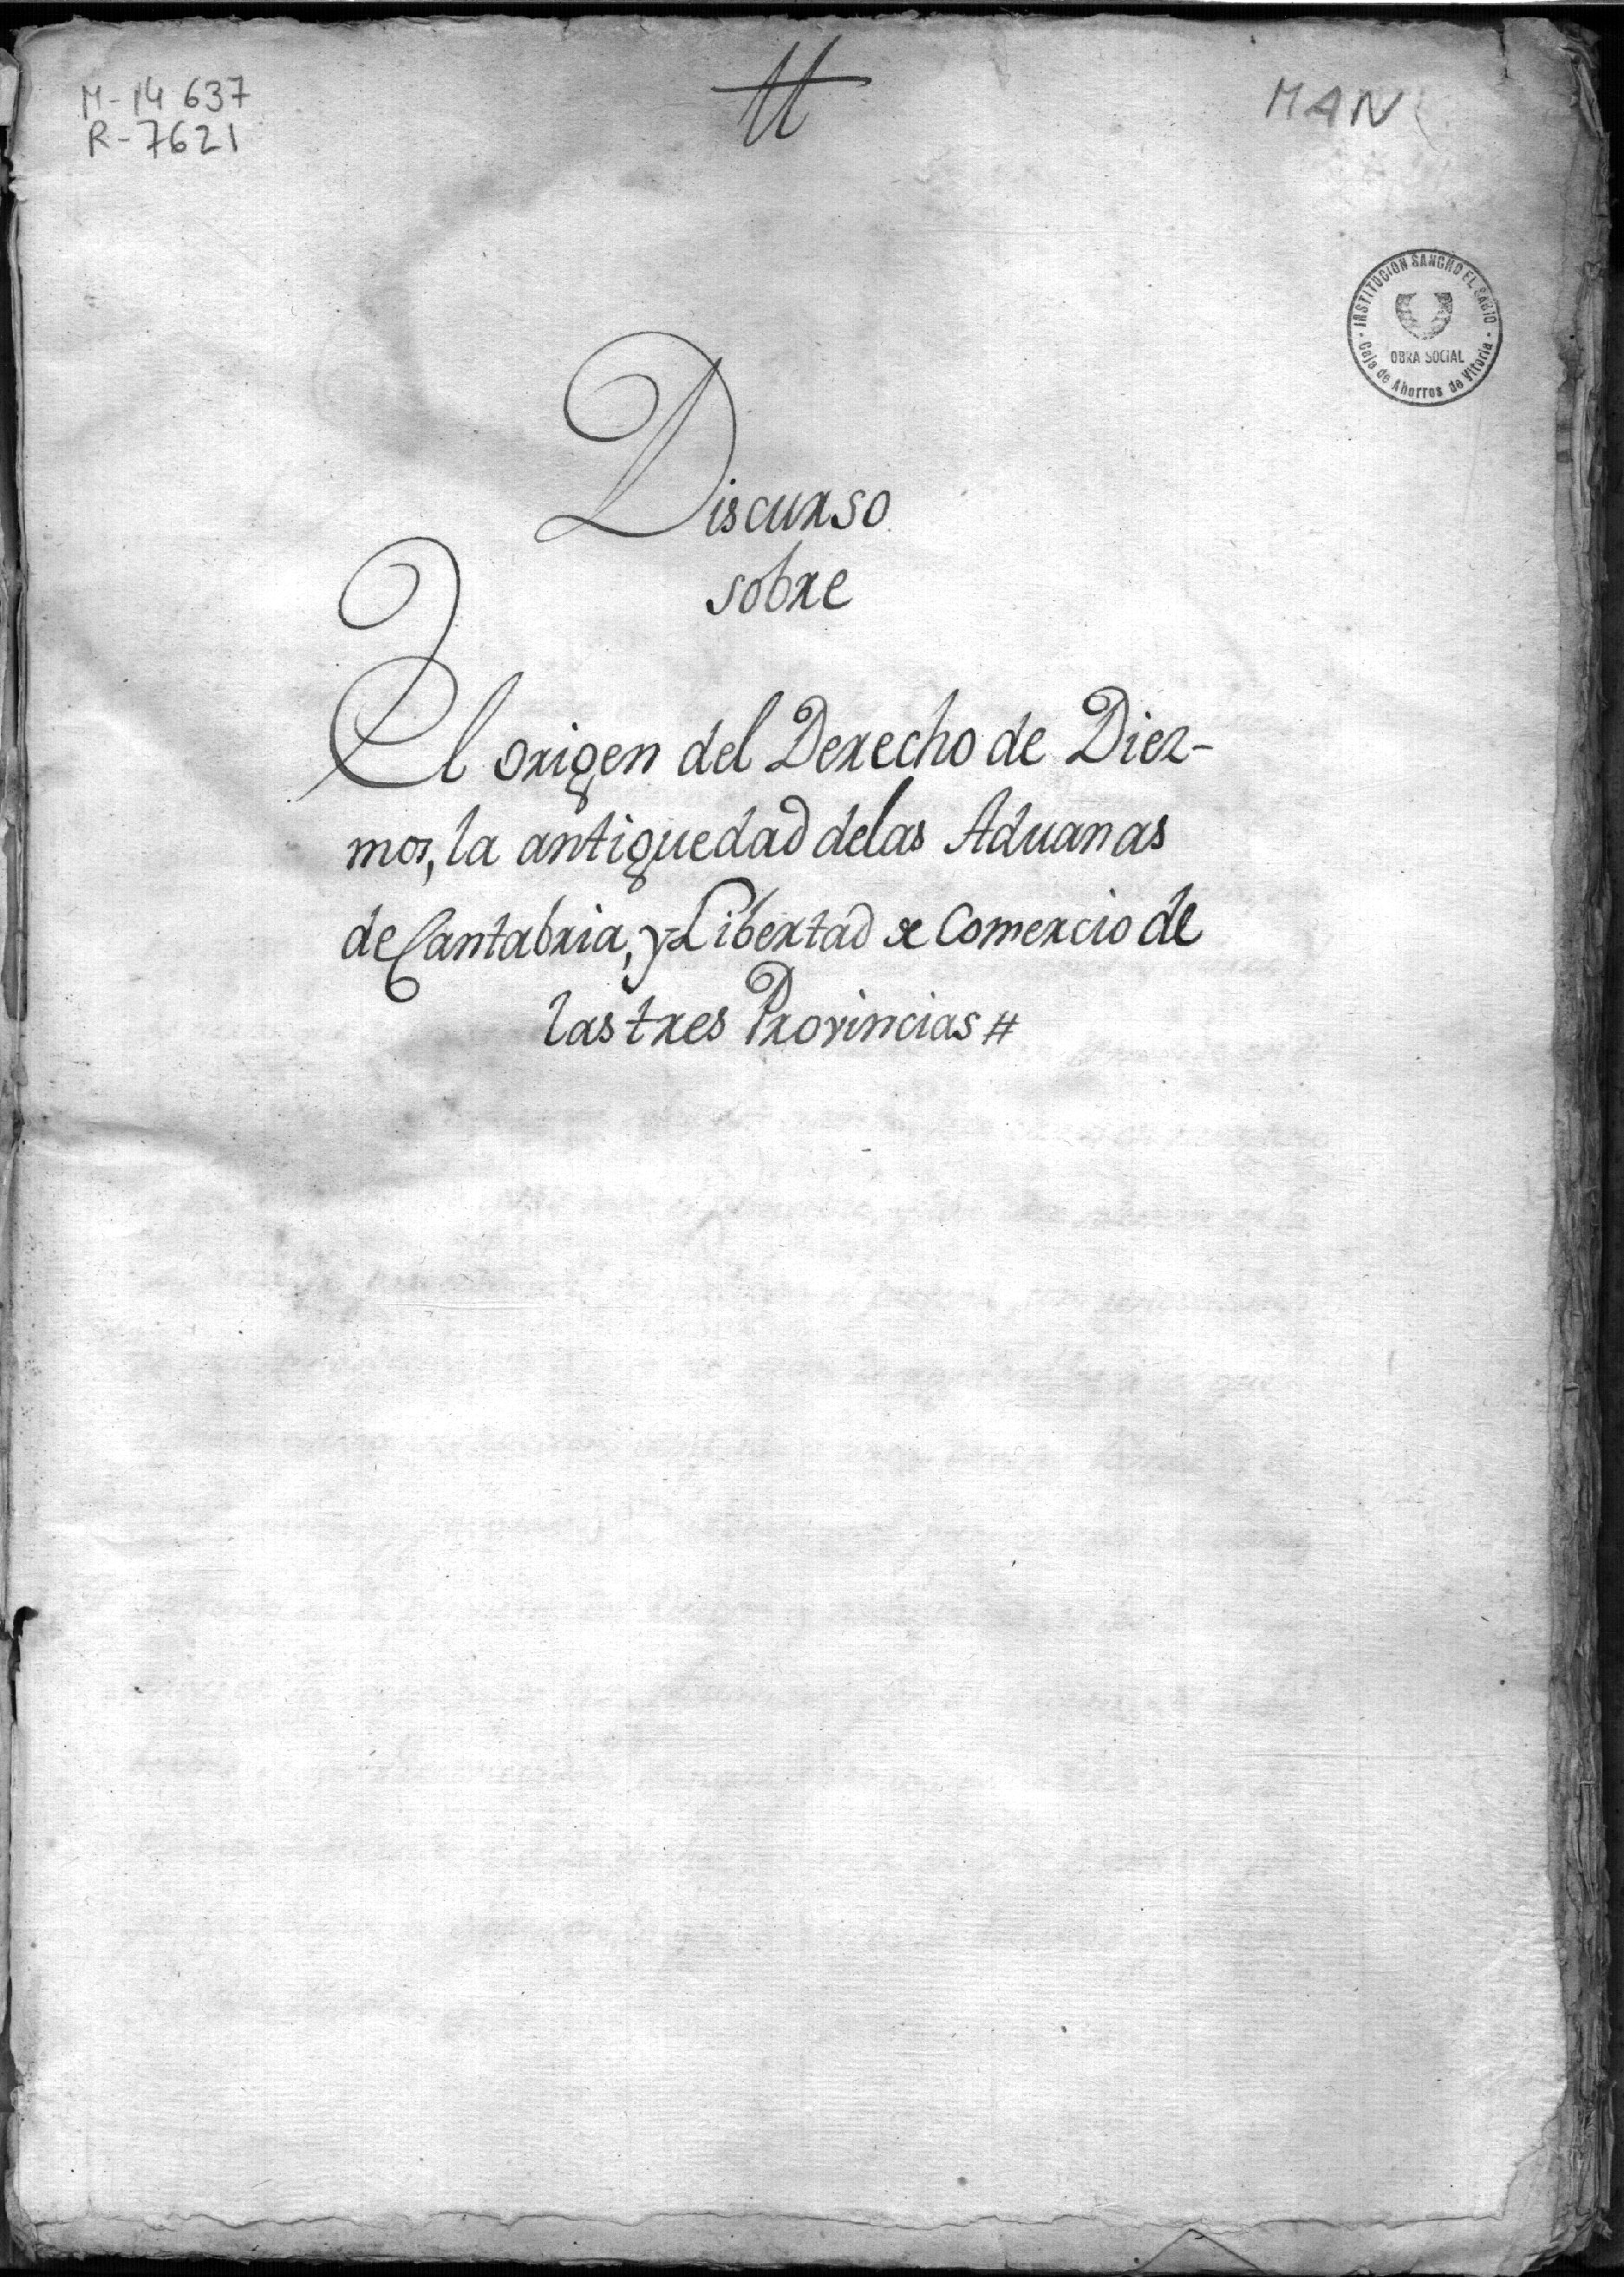 M-14 637
R-7621
MAN
INSTITUCION SANCHO EL SABIO
OBRA SOCIAL
Caja de Ahorros de Vitoria
Discurso
sobre
El origen del Derecho de Diez-
mos, la antiguedad delas Aduanas
de Cantabria, y Libertad de Comercio de
las tres Provincias #